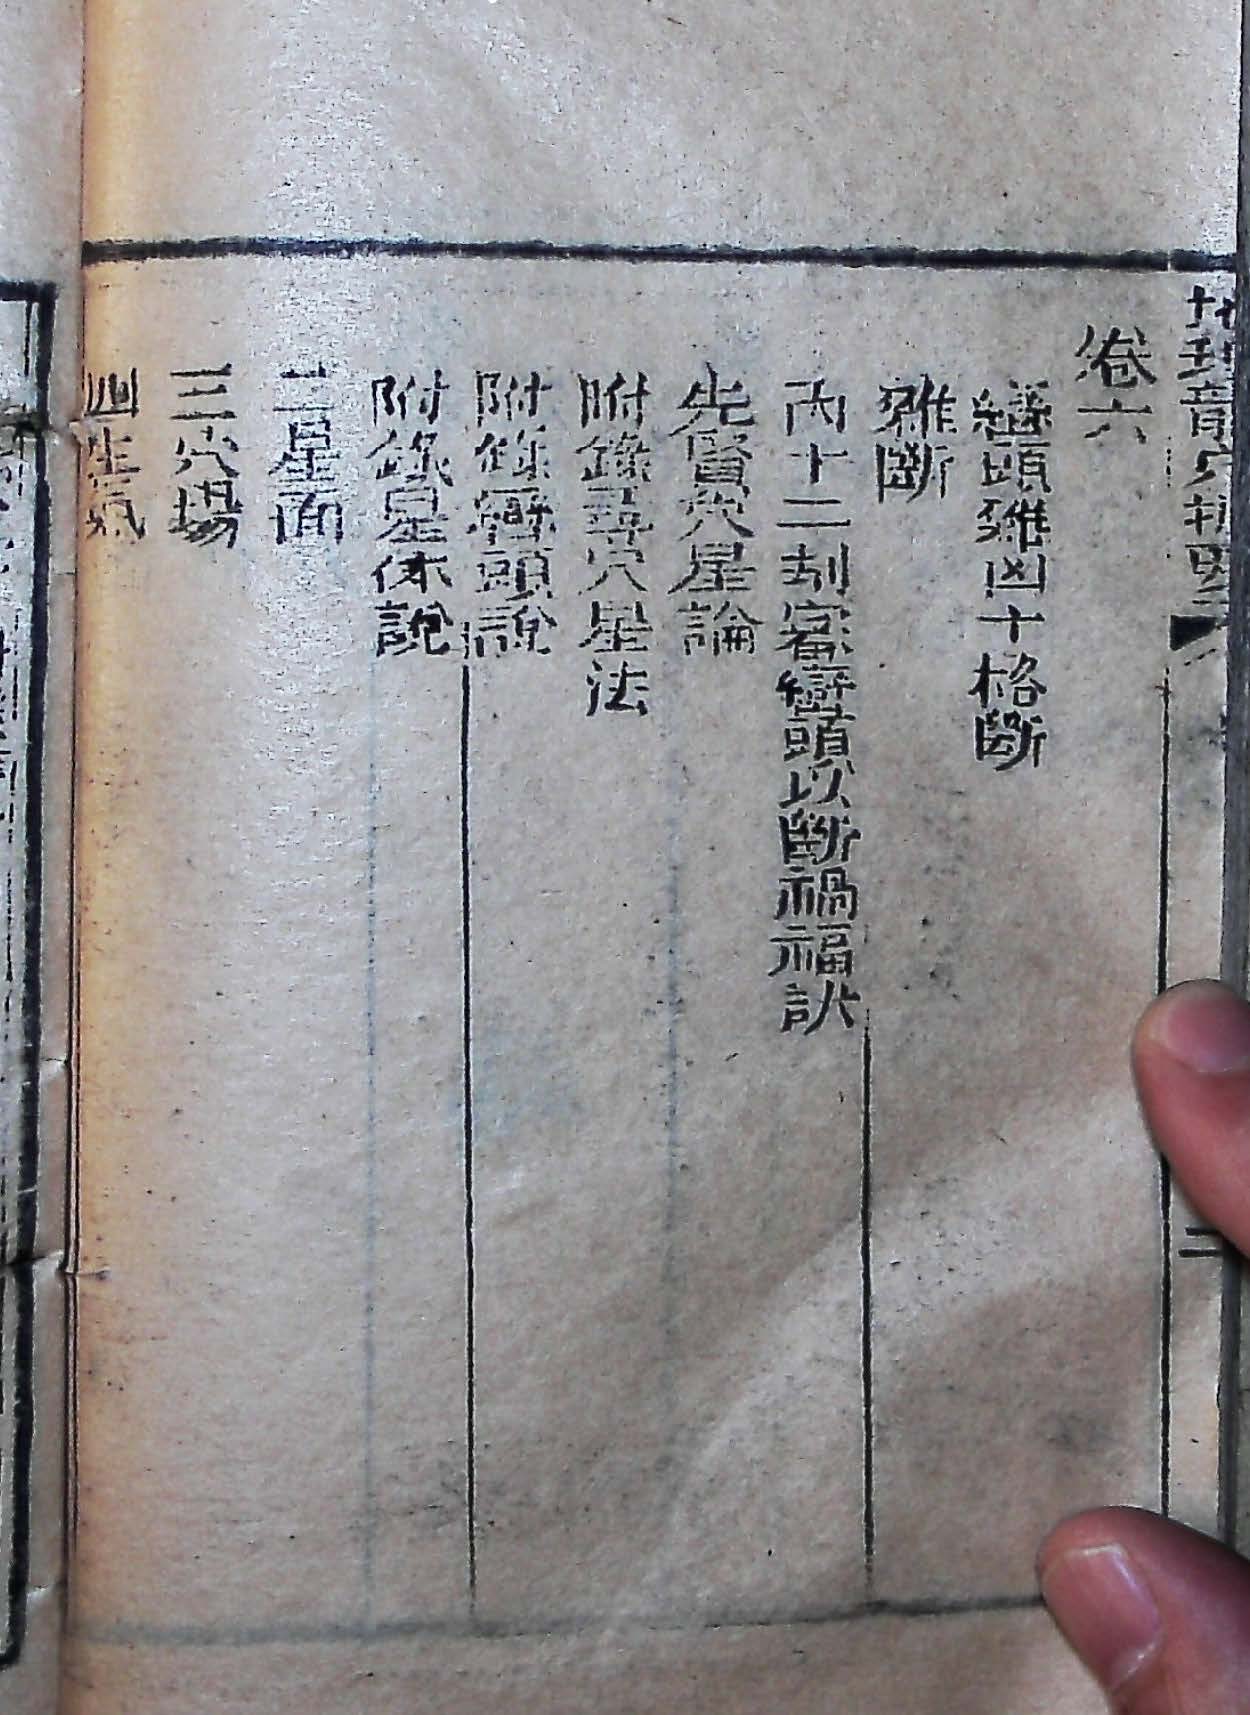 卷六
巒頭雜凶十格斷
雜斷
丙十二刻審巒頭以斷禍福訣
先賢穴星論
附錄尋穴星法
附錄巒頭說
附錄星体說
二星面
三穴場
四生氣
二